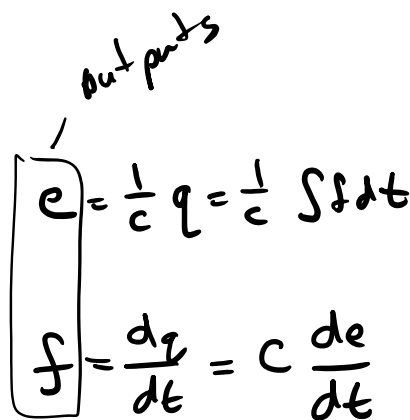 outputs
e = 1/c q = 1/c ∫f dt
f = dq/dt = C de/dt